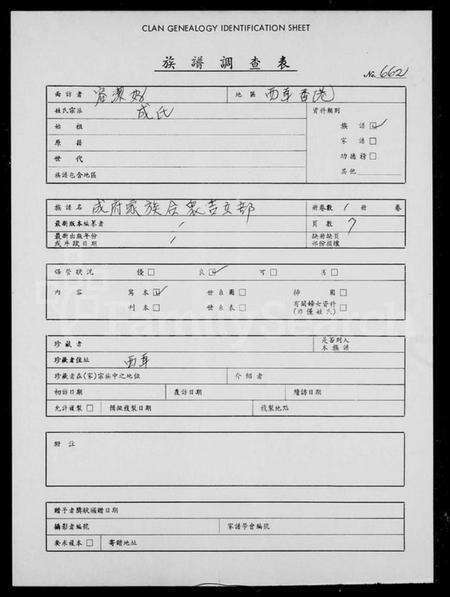 CLAN GENEALOGY IDENTIFICATION SHEET
族譜調查表
No. 662
訪者 容潔 地區 西草香港
姓氏宗族 成氏 資料類別
始祖 族譜
原籍 家譜
世代 功德榜
族譜包含地區 其他
族譜名 成府家族合衆吉文部 冊卷數 1 冊 卷
最新版本編著者 頁數 7
最新出版年份 缺冊缺頁
或手跋日期 部份損壞
保管狀況 優 良 可 劣
內容 寫本 世系圖 插圖
刊本 世系表 有關婦女資料
(乃僅姓氏)
珍藏者 是否列入
本族譜
珍藏者住址 西草
珍藏者在(家)宗族中之地位 介紹者
初訪日期 覆訪日期 續訪日期
允許複製 攝製日期 複製地點
附註
贈予者獎狀頒贈日期
攝影者編號 家譜學會編號
要求複本 寄贈地址
FamilySearch